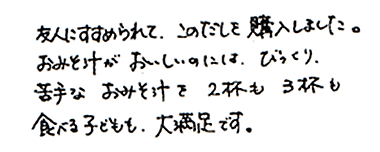 友人にすすめられて、このだしを購入しました。
おみそ汁がおいしいのには、びっくり、
苦手なおみそ汁を2杯も3杯も
食べる子どもも、大満足です。